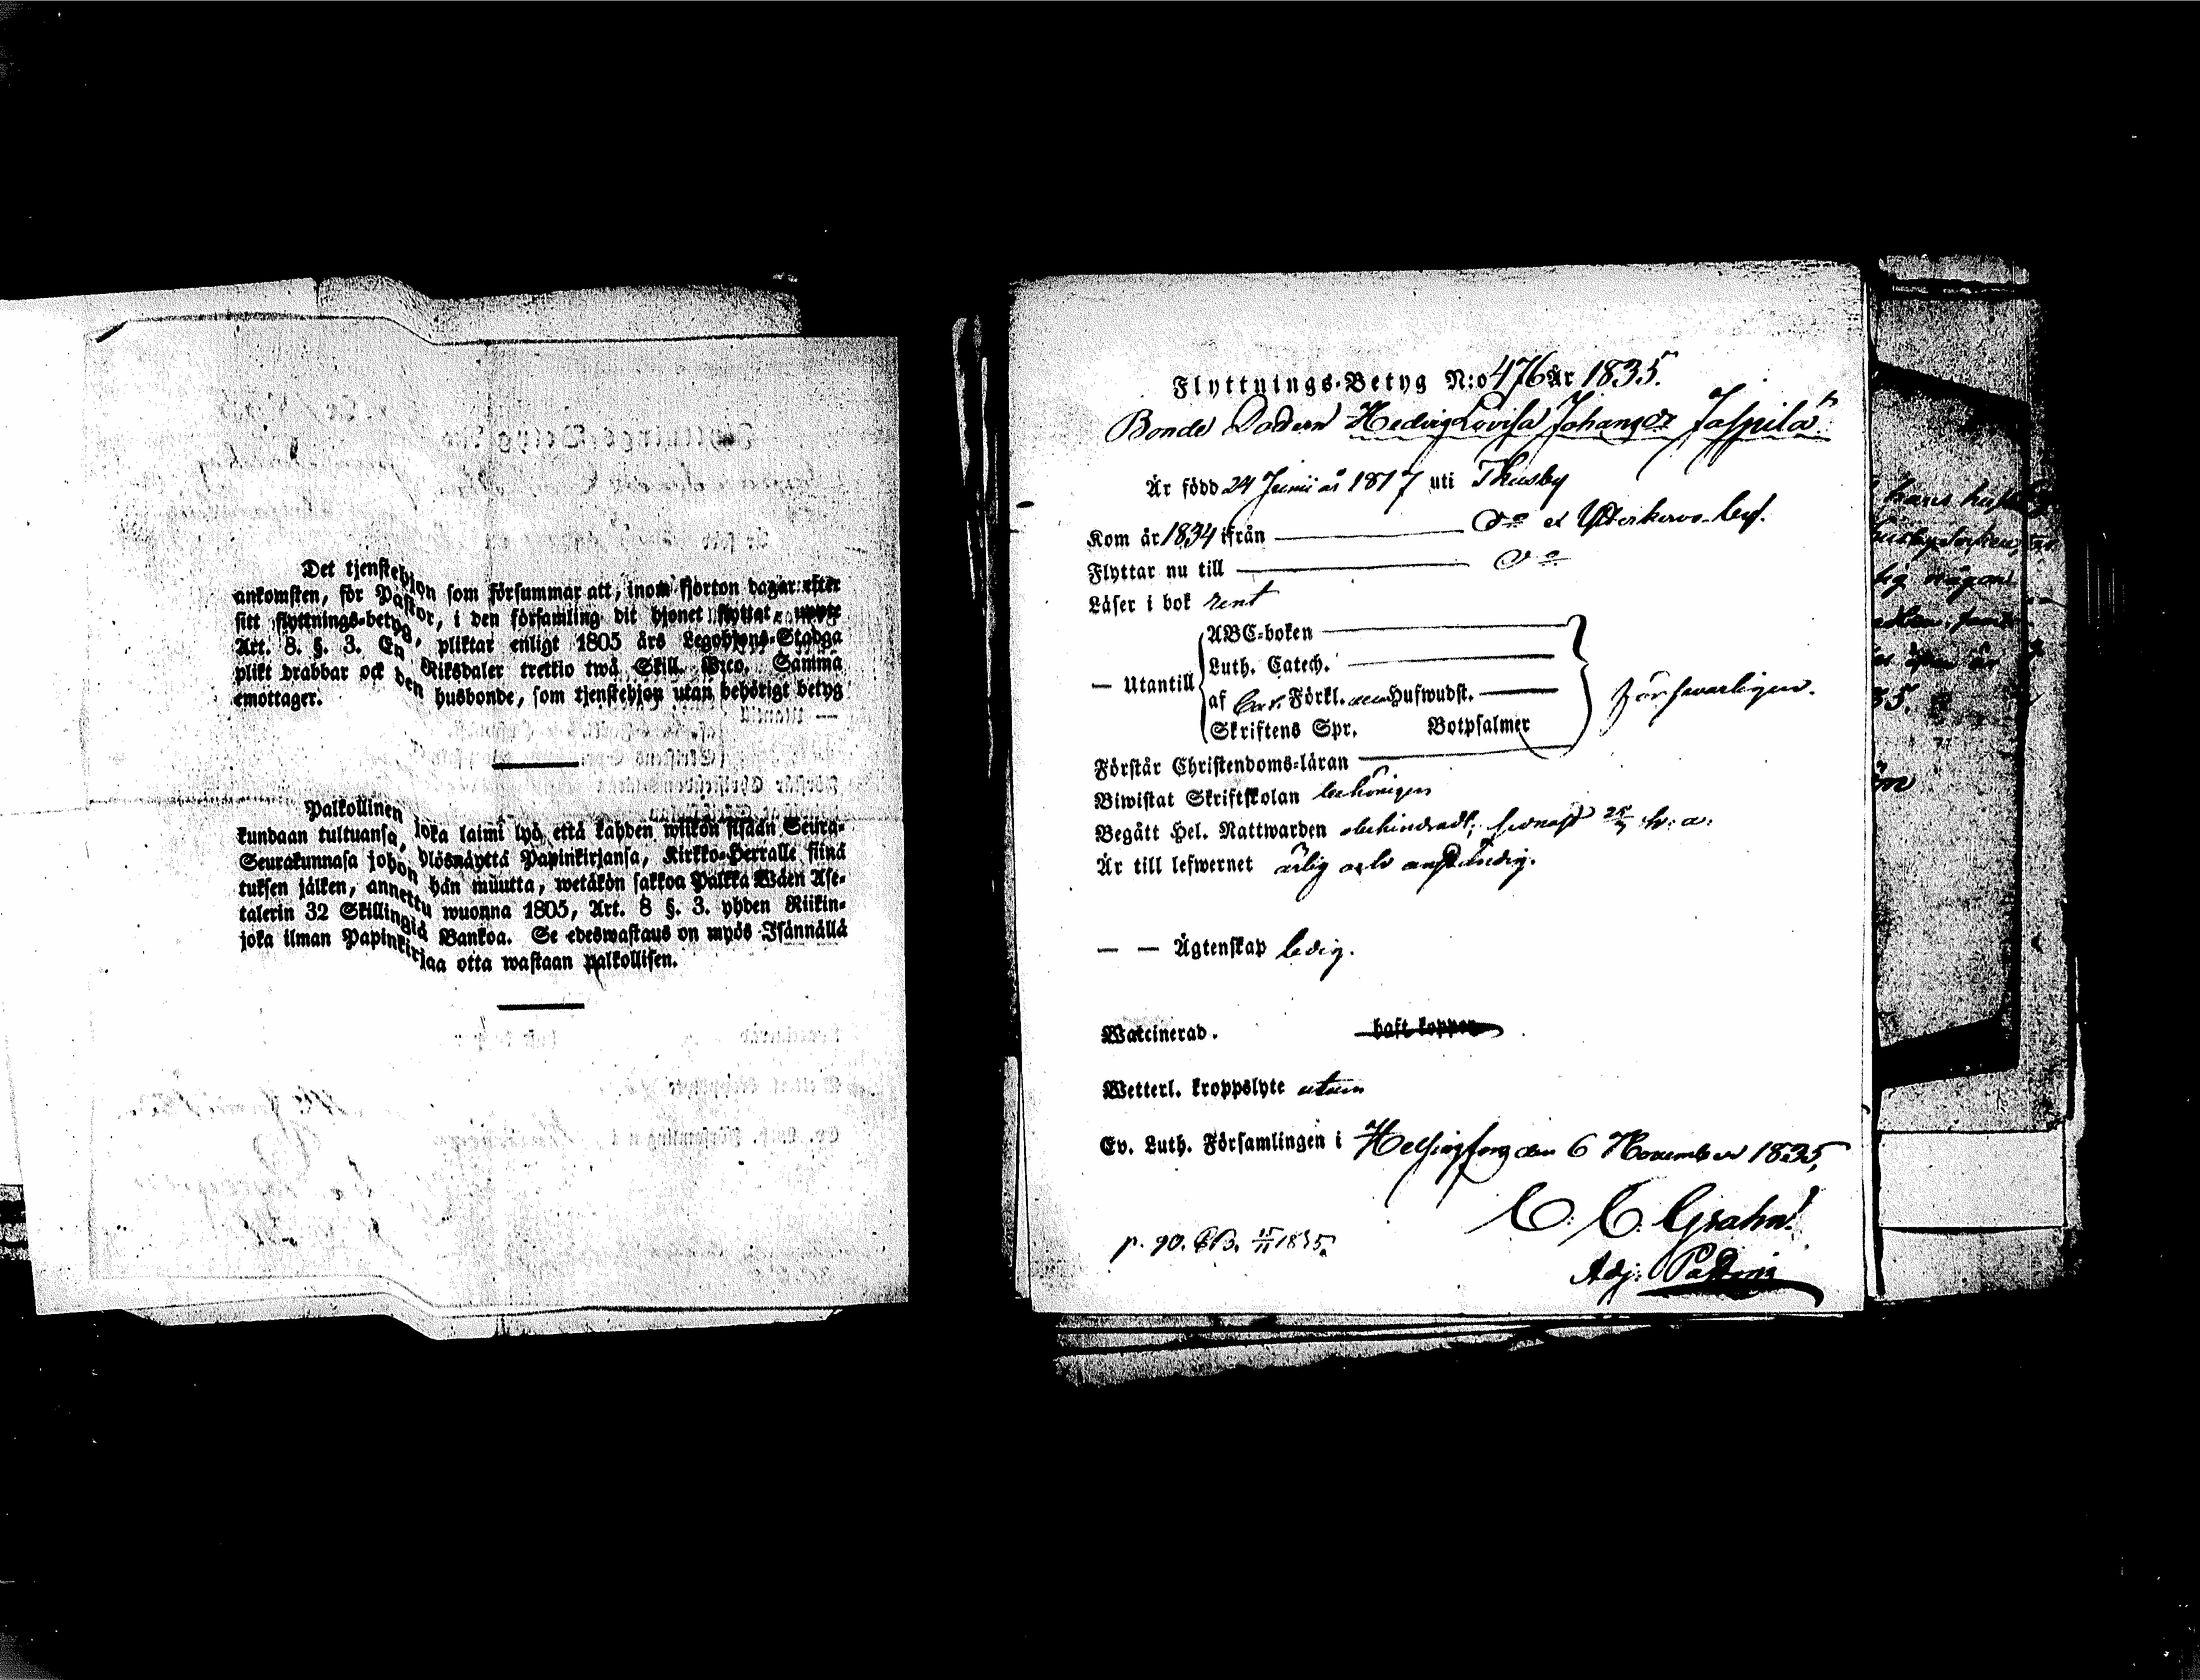 Det tjenstehjon som försummar att, inom fjorton dagar efter
ankomsten, för Pastor, i den församling dit hjonet flyttat
sitt flyttnings-betyg, pliktar enligt 1805 års Legohjons-Stadga
Art. 8. §. 3. En Riksdaler trettio twå Skill. B:co. Samma
plikt drabbar ock den husbonde, som tjenstehjon utan behörigt betyg
emottager.
Palkollinen joka laimi lyö, että kahden wiikon sisään Seura-
kundaan tultuansa, ylösnäyttä Papinkirjansa, Kirkko-Herralle siinä
Seurakunnasa johon hän muutta, wetäkön sakkoa Palkka Wäen Ase-
tuksen jälken, annettu wuonna 1805, Art. 8 §. 3. yhden Riikin-
talerin 32 Skillingiä Bankoa. Se edeswastaus on myös Isännällä
joka ilman Papinkirjaa otta wastaan palkollisen.
Flyttnings-Betyg N:o 476 år 1835.
Bonde Dottern Hedvig Lovisa Johansdr Jaspilä
Är född 24 Junii år 1817 uti Thusby
Kom år 1834 ifrån do
Flyttar nu till do
Läser i bok rent
ABC-boken
Luth. Catech.
— Utantill
af Förkl. Hufwudst.
försvarligen.
Skriftens Spr. Botpsalmer
Förstår Christendoms-läran
Biwistat Skriftskolan behörigen
Begått Hel. Nattwarden obehindradt, senast h. a.
Är till lefwernet ärlig och anständig.
— — Ägtenskap ledig.
Waccinerad. haft koppor
Wetterl. kroppslyte utan
Ev. Luth. Församlingen i Helsingfors den 6 November 1835.
C. C. Grahn
p. 90. 1835.
Adj. Past.